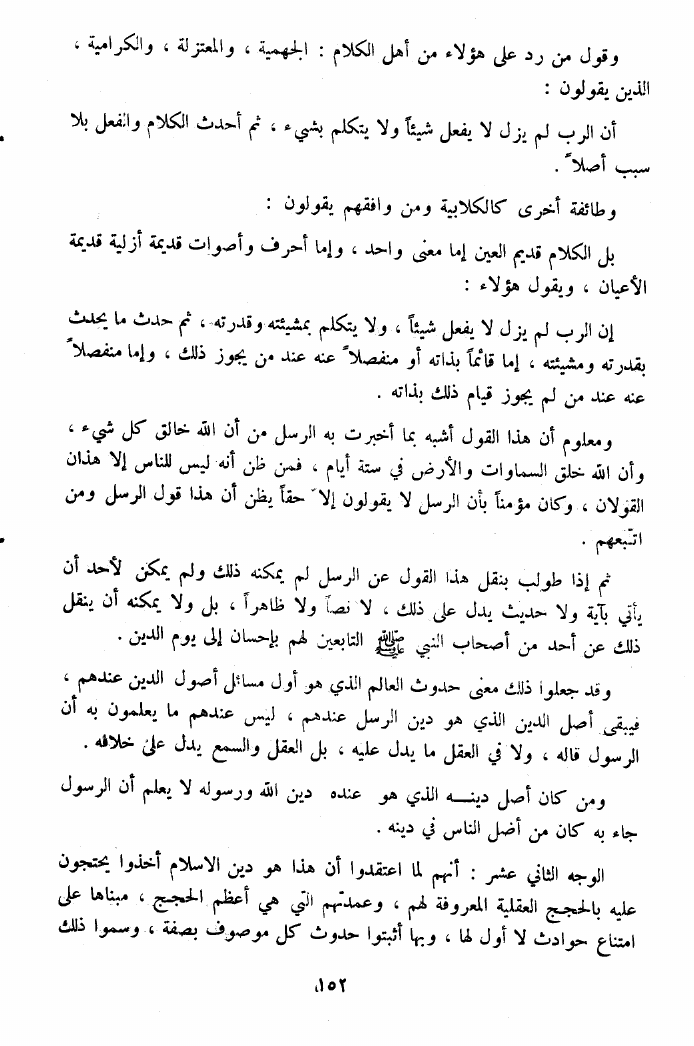 وقول من رد على هؤلاء من أهل الكلام : الجهمية ، والمعتزلة ، والكرامية ،
الذين يقولون :
أن الرب لم يزل لا يفعل شيئاً ولا يتكلم بشيء ، ثم أحدث الكلام والفعل بلا
سبب أصلاً .
وطائفة أخرى كالكلابية ومن وافقهم يقولون :
بل الكلام قديم العين إما معنى واحد ، وإما أحرف وأصوات قديمة أزلية قديمة
الأعيان ، ويقول هؤلاء :
إن الرب لم يزل لا يفعل شيئاً ، ولا يتكلم بمشيئته وقدرته ، ثم حدث ما يحدث
بقدرته ومشيئته ، إما قائماً بذاته أو منفصلاً عنه عند من يجوز ذلك ، وإما منفصلاً
عنه عند من لم يجوز قيام ذلك بذاته .
ومعلوم أن هذا القول أشبه بما أخبرت به الرسل من أن الله خالق كل شيء ،
وأن الله خلق السماوات والأرض في ستة أيام ، فمن ظن أنه ليس للناس إلا هذان
القولان ، وكان مؤمناً بأن الرسل لا يقولون إلا حقاً يظن أن هذا قول الرسل ومن
اتبعهم .
ثم إذا طولب بنقل هذا القول عن الرسل لم يمكنه ذلك ولم يمكن لأحد أن
يأتي بآية ولا حديث يدل على ذلك ، لا نصاً ولا ظاهراً ، بل ولا يمكنه أن ينقل
ذلك عن أحد من أصحاب النبي ﷺ التابعين لهم بإحسان إلى يوم الدين .
وقد جعلوا ذلك معنى حدوث العالم الذي هو أول مسائل أصول الدين عندهم ،
فيبقى أصل الدين الذي هو دين الرسل عندهم ، ليس عندهم ما يعلمون به أن
الرسول قاله ، ولا في العقل ما يدل عليه ، بل العقل والسمع يدل على خلافه .
ومن كان أصل دينـــه الذي هو عنده دين الله ورسوله لا يعلم أن الرسول
جاء به كان من أضل الناس في دينه .
الوجه الثاني عشر : أنهم لما اعتقدوا أن هذا هو دين الاسلام أخذوا يحتجون
عليه بالحجج العقلية المعروفة لهم ، وعمدتهم التي هي أعظم الحجج ، مبناها على
امتناع حوادث لا أول لها ، وبها أثبتوا حدوث كل موصوف بصفة ، وسموا ذلك
١٥٢